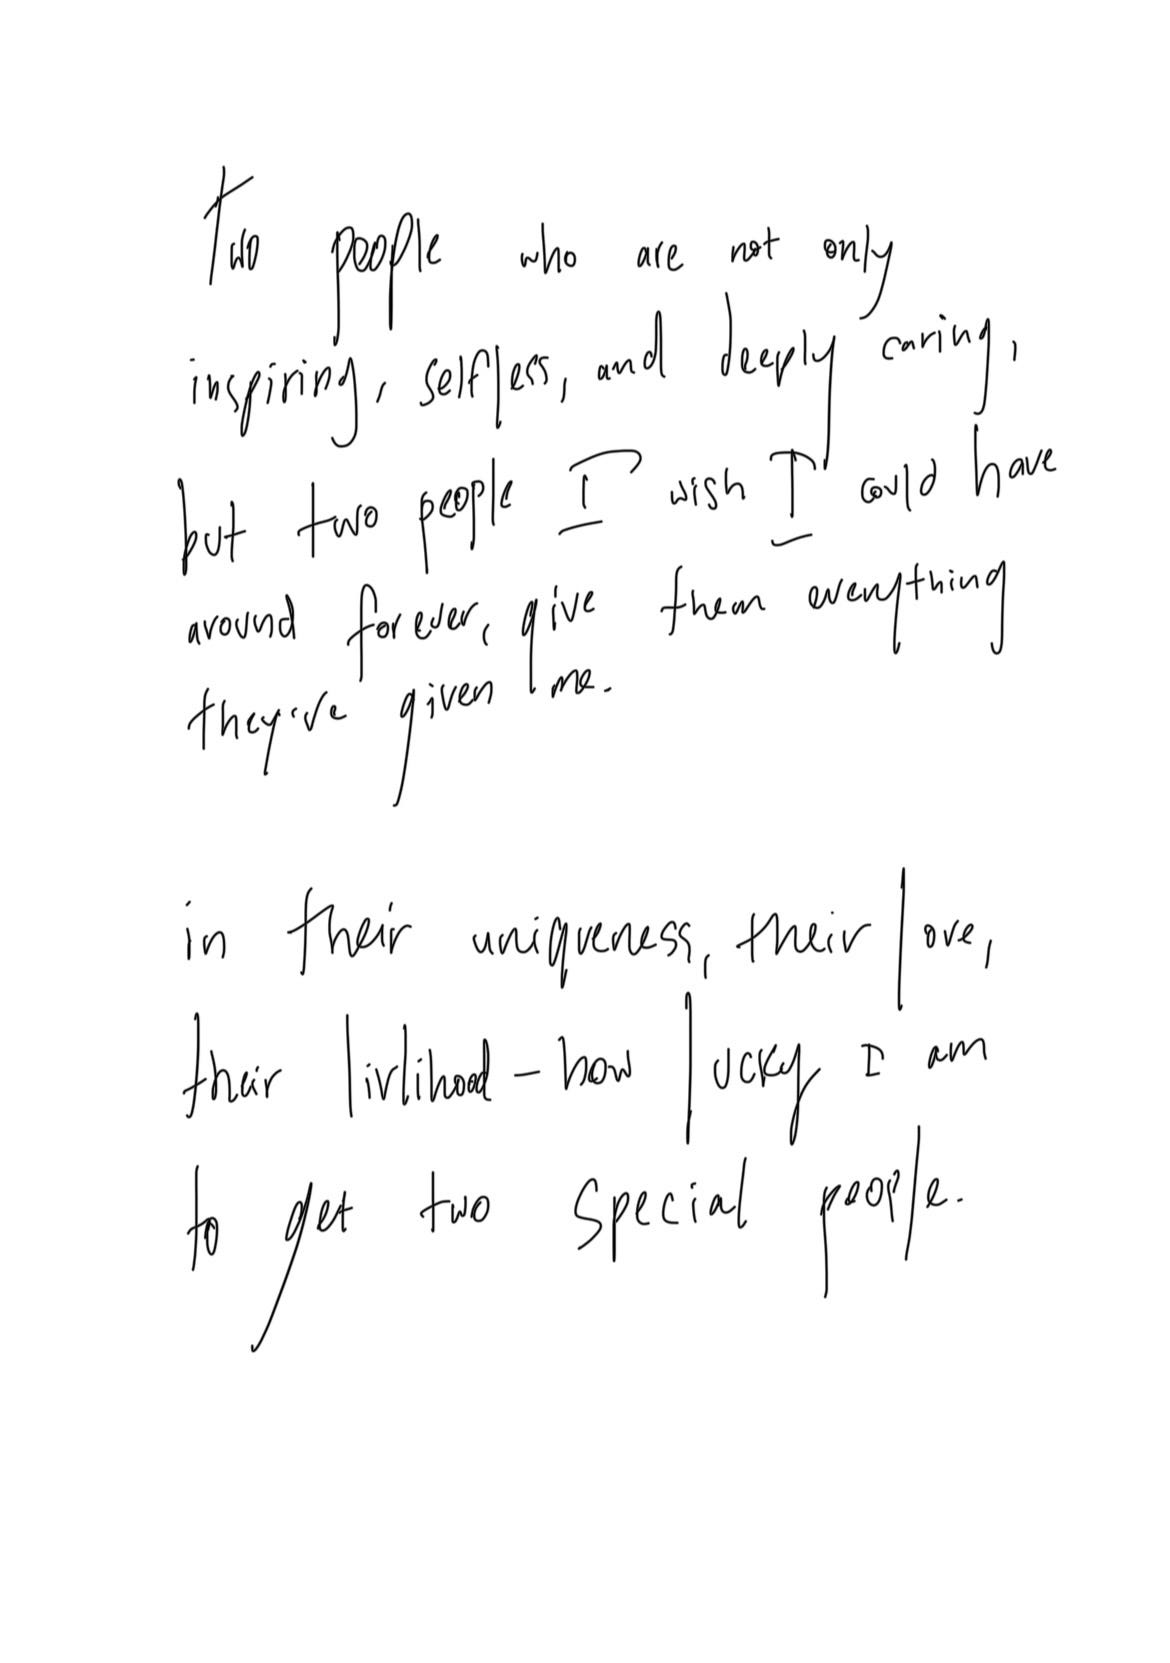 Two people who are not only
inspiring, selfless, and deeply caring,
but two people I wish I could have
around forever, give them everything
they've given me.
in their uniqueness, their love,
their livlihood - how lucky I am
to get two special people.